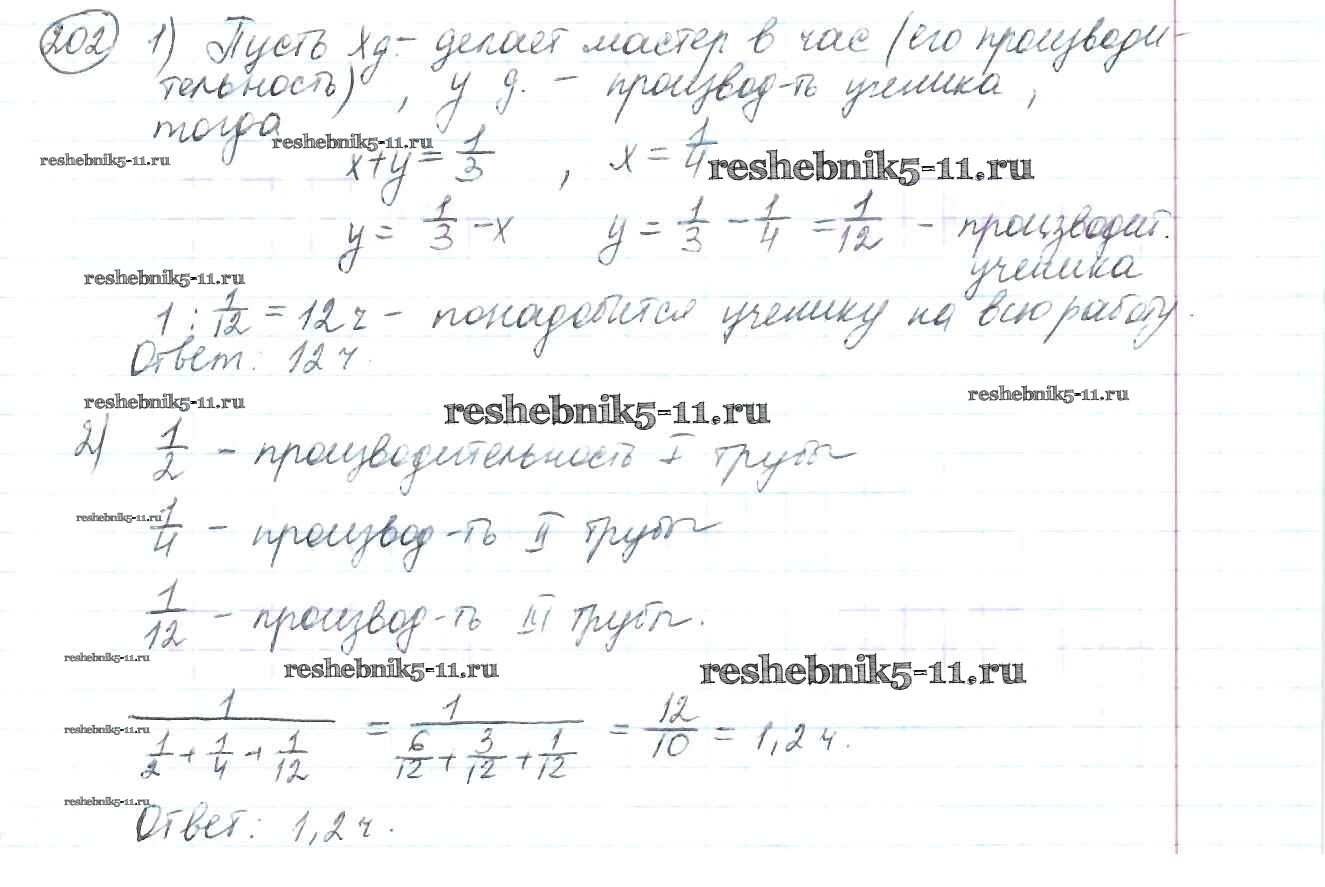 202 1) Пусть x д. – делает мастер в час (его производи-
тельность), y д. – производ-ть ученика,
тогда
reshebnik5-11.ru
reshebnik5-11.ru
x+y = 1/3 , x = 1/4
reshebnik5-11.ru
y = 1/3 - x y = 1/3 - 1/4 = 1/12 – производит.
ученика
reshebnik5-11.ru
1 : 1/12 = 12 ч – понадобится ученику на всю работу.
Ответ: 12 ч.
reshebnik5-11.ru
reshebnik5-11.ru
reshebnik5-11.ru
2) 1/2 – производительность I трубы
reshebnik5-11.ru
1/4 – производ-ть II трубы
1/12 – производ-ть III трубы.
reshebnik5-11.ru
reshebnik5-11.ru
reshebnik5-11.ru
1/(1/2 + 1/4 + 1/12) = 1/(6/12 + 3/12 + 1/12) = 12/10 = 1,2 ч.
reshebnik5-11.ru
reshebnik5-11.ru
Ответ: 1,2 ч.